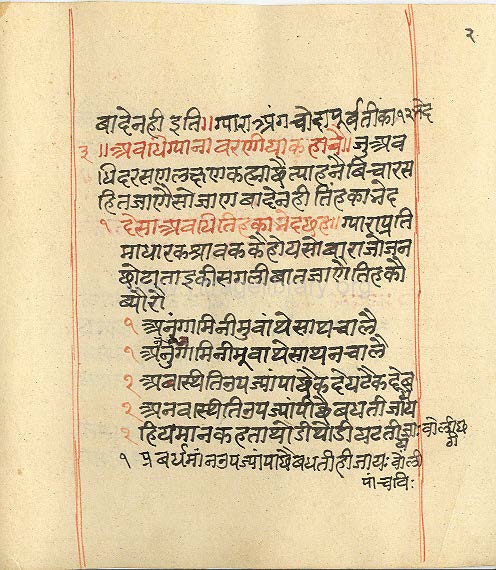 २
बादेनही इति॥ग्याराअंग चोदापूर्वतीका१२भेदे
३॥अवधिग्याना वरणीयाक हावै॥जुअव
धिदरसणलछणकह्माछैत्याहनैबिचारस
हितजाणैसोजाणबादेनही तिंहकाभेद
१ देसाअवधितिहकाभेदछह॥ग्याराप्रति
माधारकश्रावककैहोयसोबाराजोजन
छोटाताइकीसगलीबातजाणैतिहकौ
ब्यौरो
१ अनुंगामिनीमुवांथेसाथचालै
१ अनुंगामिनीमूवाथेसाथनचालै
१ अवास्थीतिउपज्यांपाछैकदेघटैकदेबधै
१ अनवास्थीतिउपज्यांपीछैबधतीजाय
१ हियमानकहताथोडीथोडीघटतीजाः
१ प्रबर्धमांनउपज्यांपाछैबधतीहीजायः
पांचवि